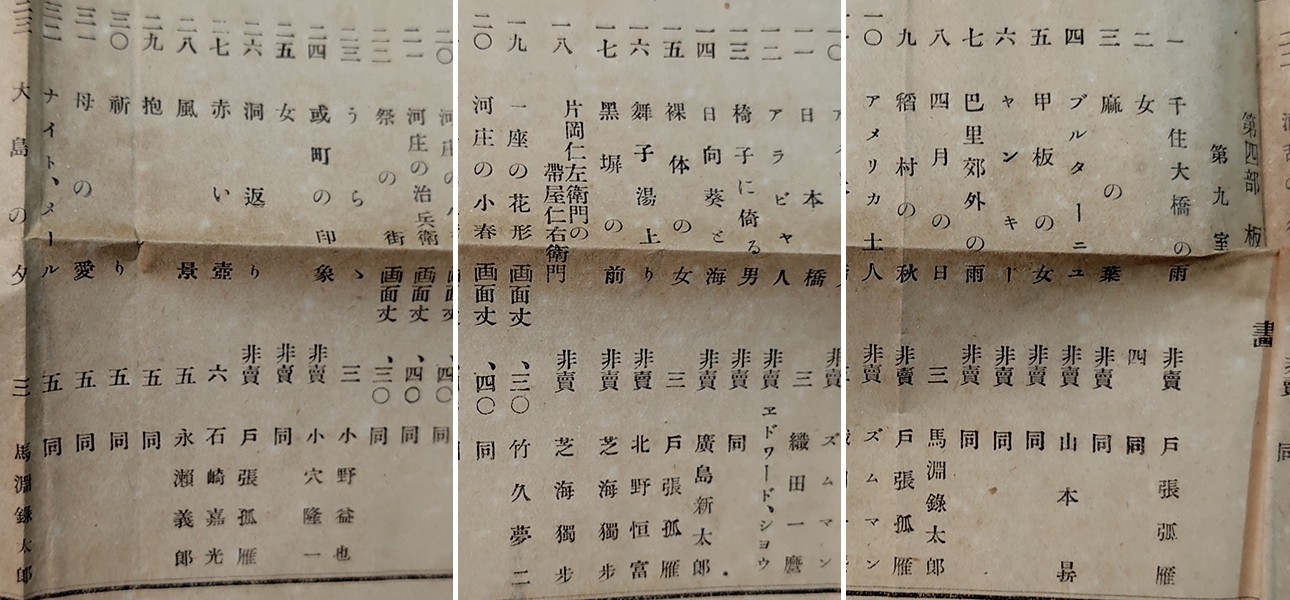 第四部 板畫
第九室
一 千住大橋の雨 非賣 戸張弧雁
二 女 四 同
三 麻の葉 非賣 同
四 ブルターニユ 非賣 山本鼎
五 甲板の女 非賣 同
六 ヤンキー 非賣 同
七 巴里郊外の雨 非賣 同
八 四月の日 三 馬淵錄太郎
九 稻村の秋 非賣 戸張孤雁
一〇 アメリカ土人 非賣 ズムマン
一一 日本橋 三 織田一麿
一二 アラビヤ人 非賣 ヱドワード、シヨウ
一三 椅子に倚る男 非賣 同
一四 日向葵と海 非賣 廣島新太郎
一五 裸体の女 三 戸張孤雁
一六 舞子湯上り 非賣 北野恒富
一七 黑塀の前 非賣 芝海獨步
一八 片岡仁左衛門の
帶屋仁右衛門 非賣 芝海獨步
一九 一座の花形 画面丈 、三〇 竹久夢二
二〇 河庄の小春 画面丈 、四〇 同
二一 河庄の治兵衛 画面丈 、四〇 同
二二 祭の街 画面丈 、三〇 同
二三 うらゝ 三 小野益也
二四 或町の印象 非賣 小穴隆一
二五 女 非賣 同
二六 洞返り 非賣 戸張孤雁
二七 赤い壺 六 石崎嘉光
二八 風景 五 永瀬義郎
二九 抱 五 同
三〇 祈り 五 同
三一 母の愛 五 同
三二 ナイト、メール 五 同
三三 大島の夕 三 馬淵錄太郎